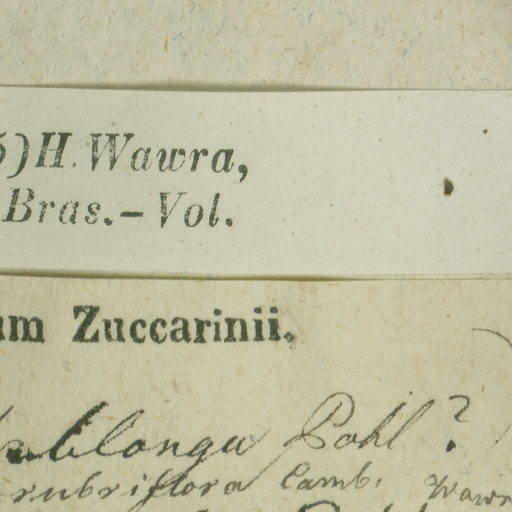 5)H. Wawra,
Bras.–Vol.
um Zuccarinii.
oblonga Pohl?
rubriflora Camb. Wawr